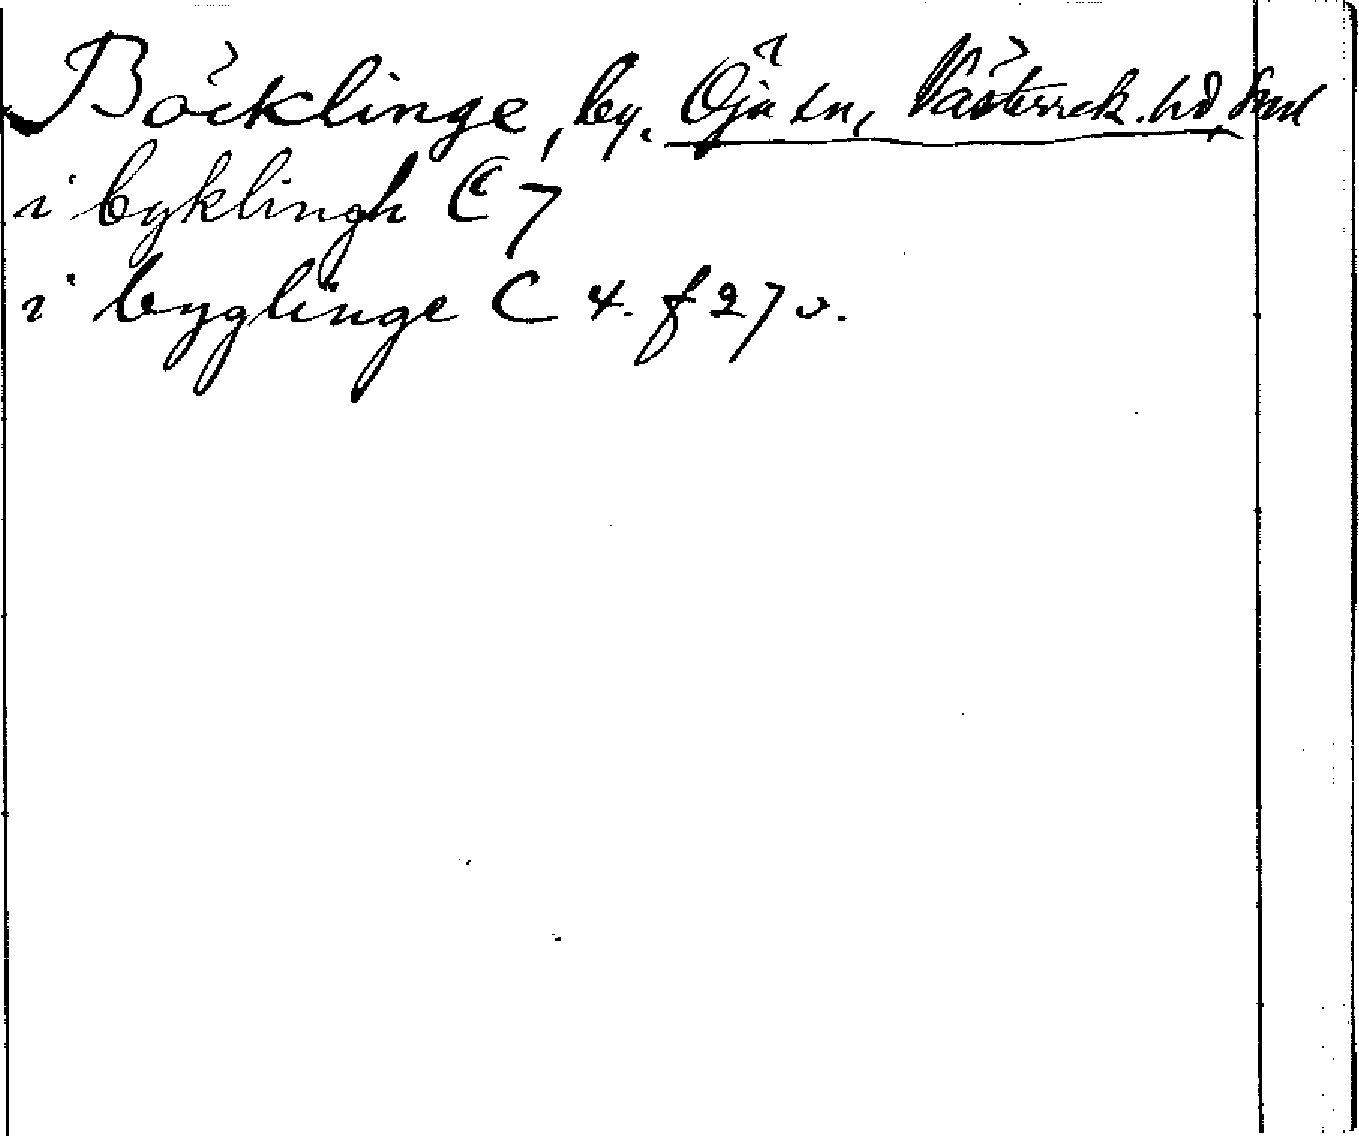 Böcklinge, by. Öja sn, Västerrek. hd, Sml
i byklingh C 7
i byglinge C 4. f 27 v.